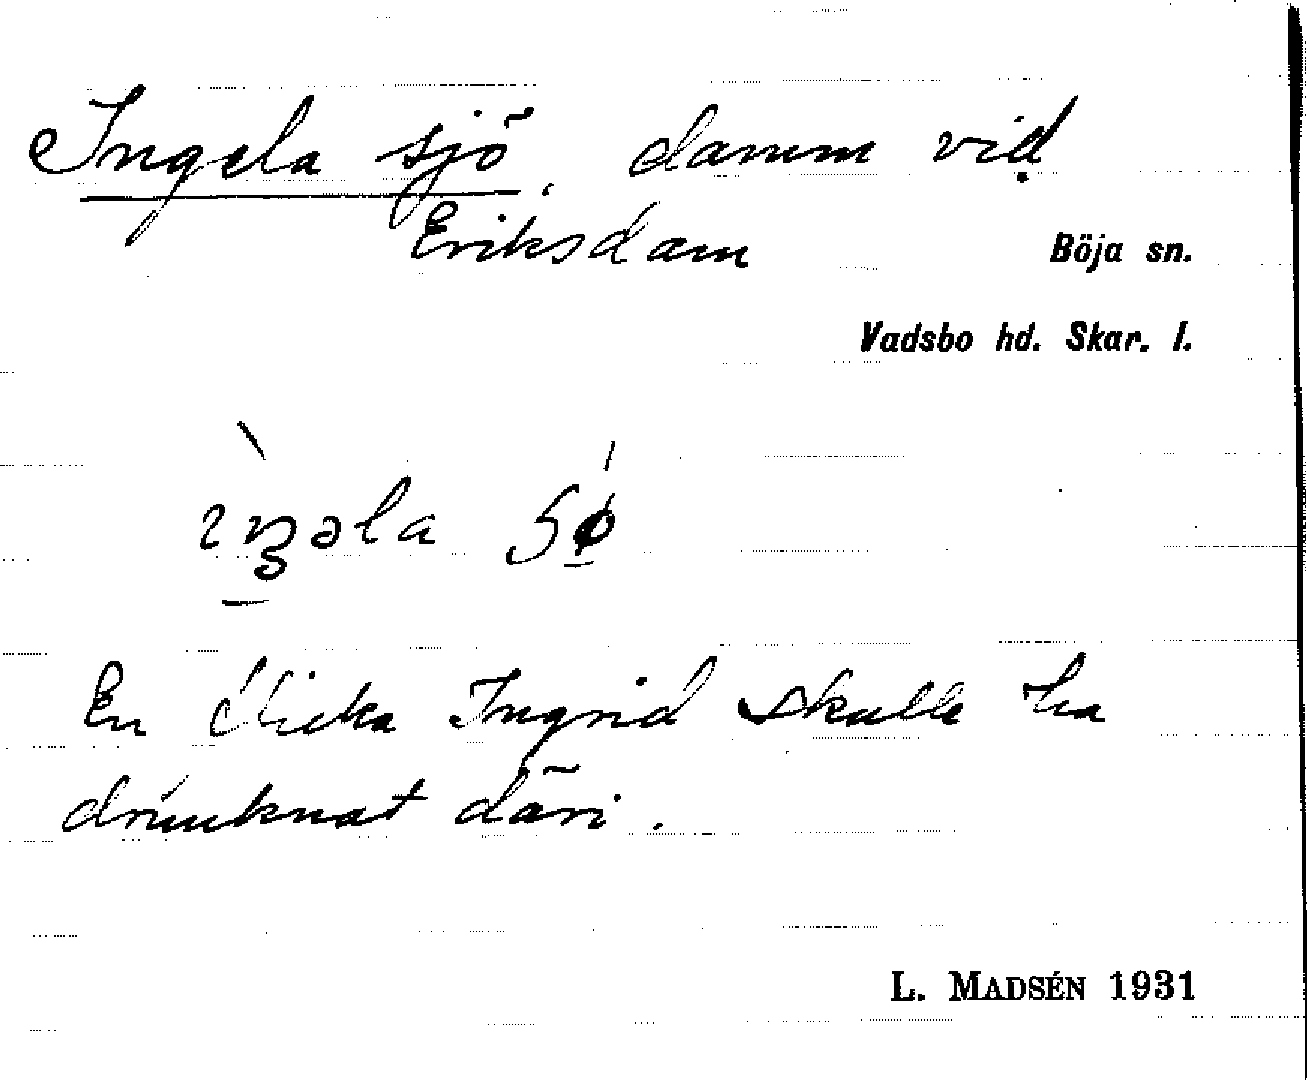 Ingela sjö, damm vid
Eriksdam
Böja sn.
Vadsbo hd. Skar. l.
En flicka Ingrid skulle ha
drunknat däri.
L. MADSÉN 1931